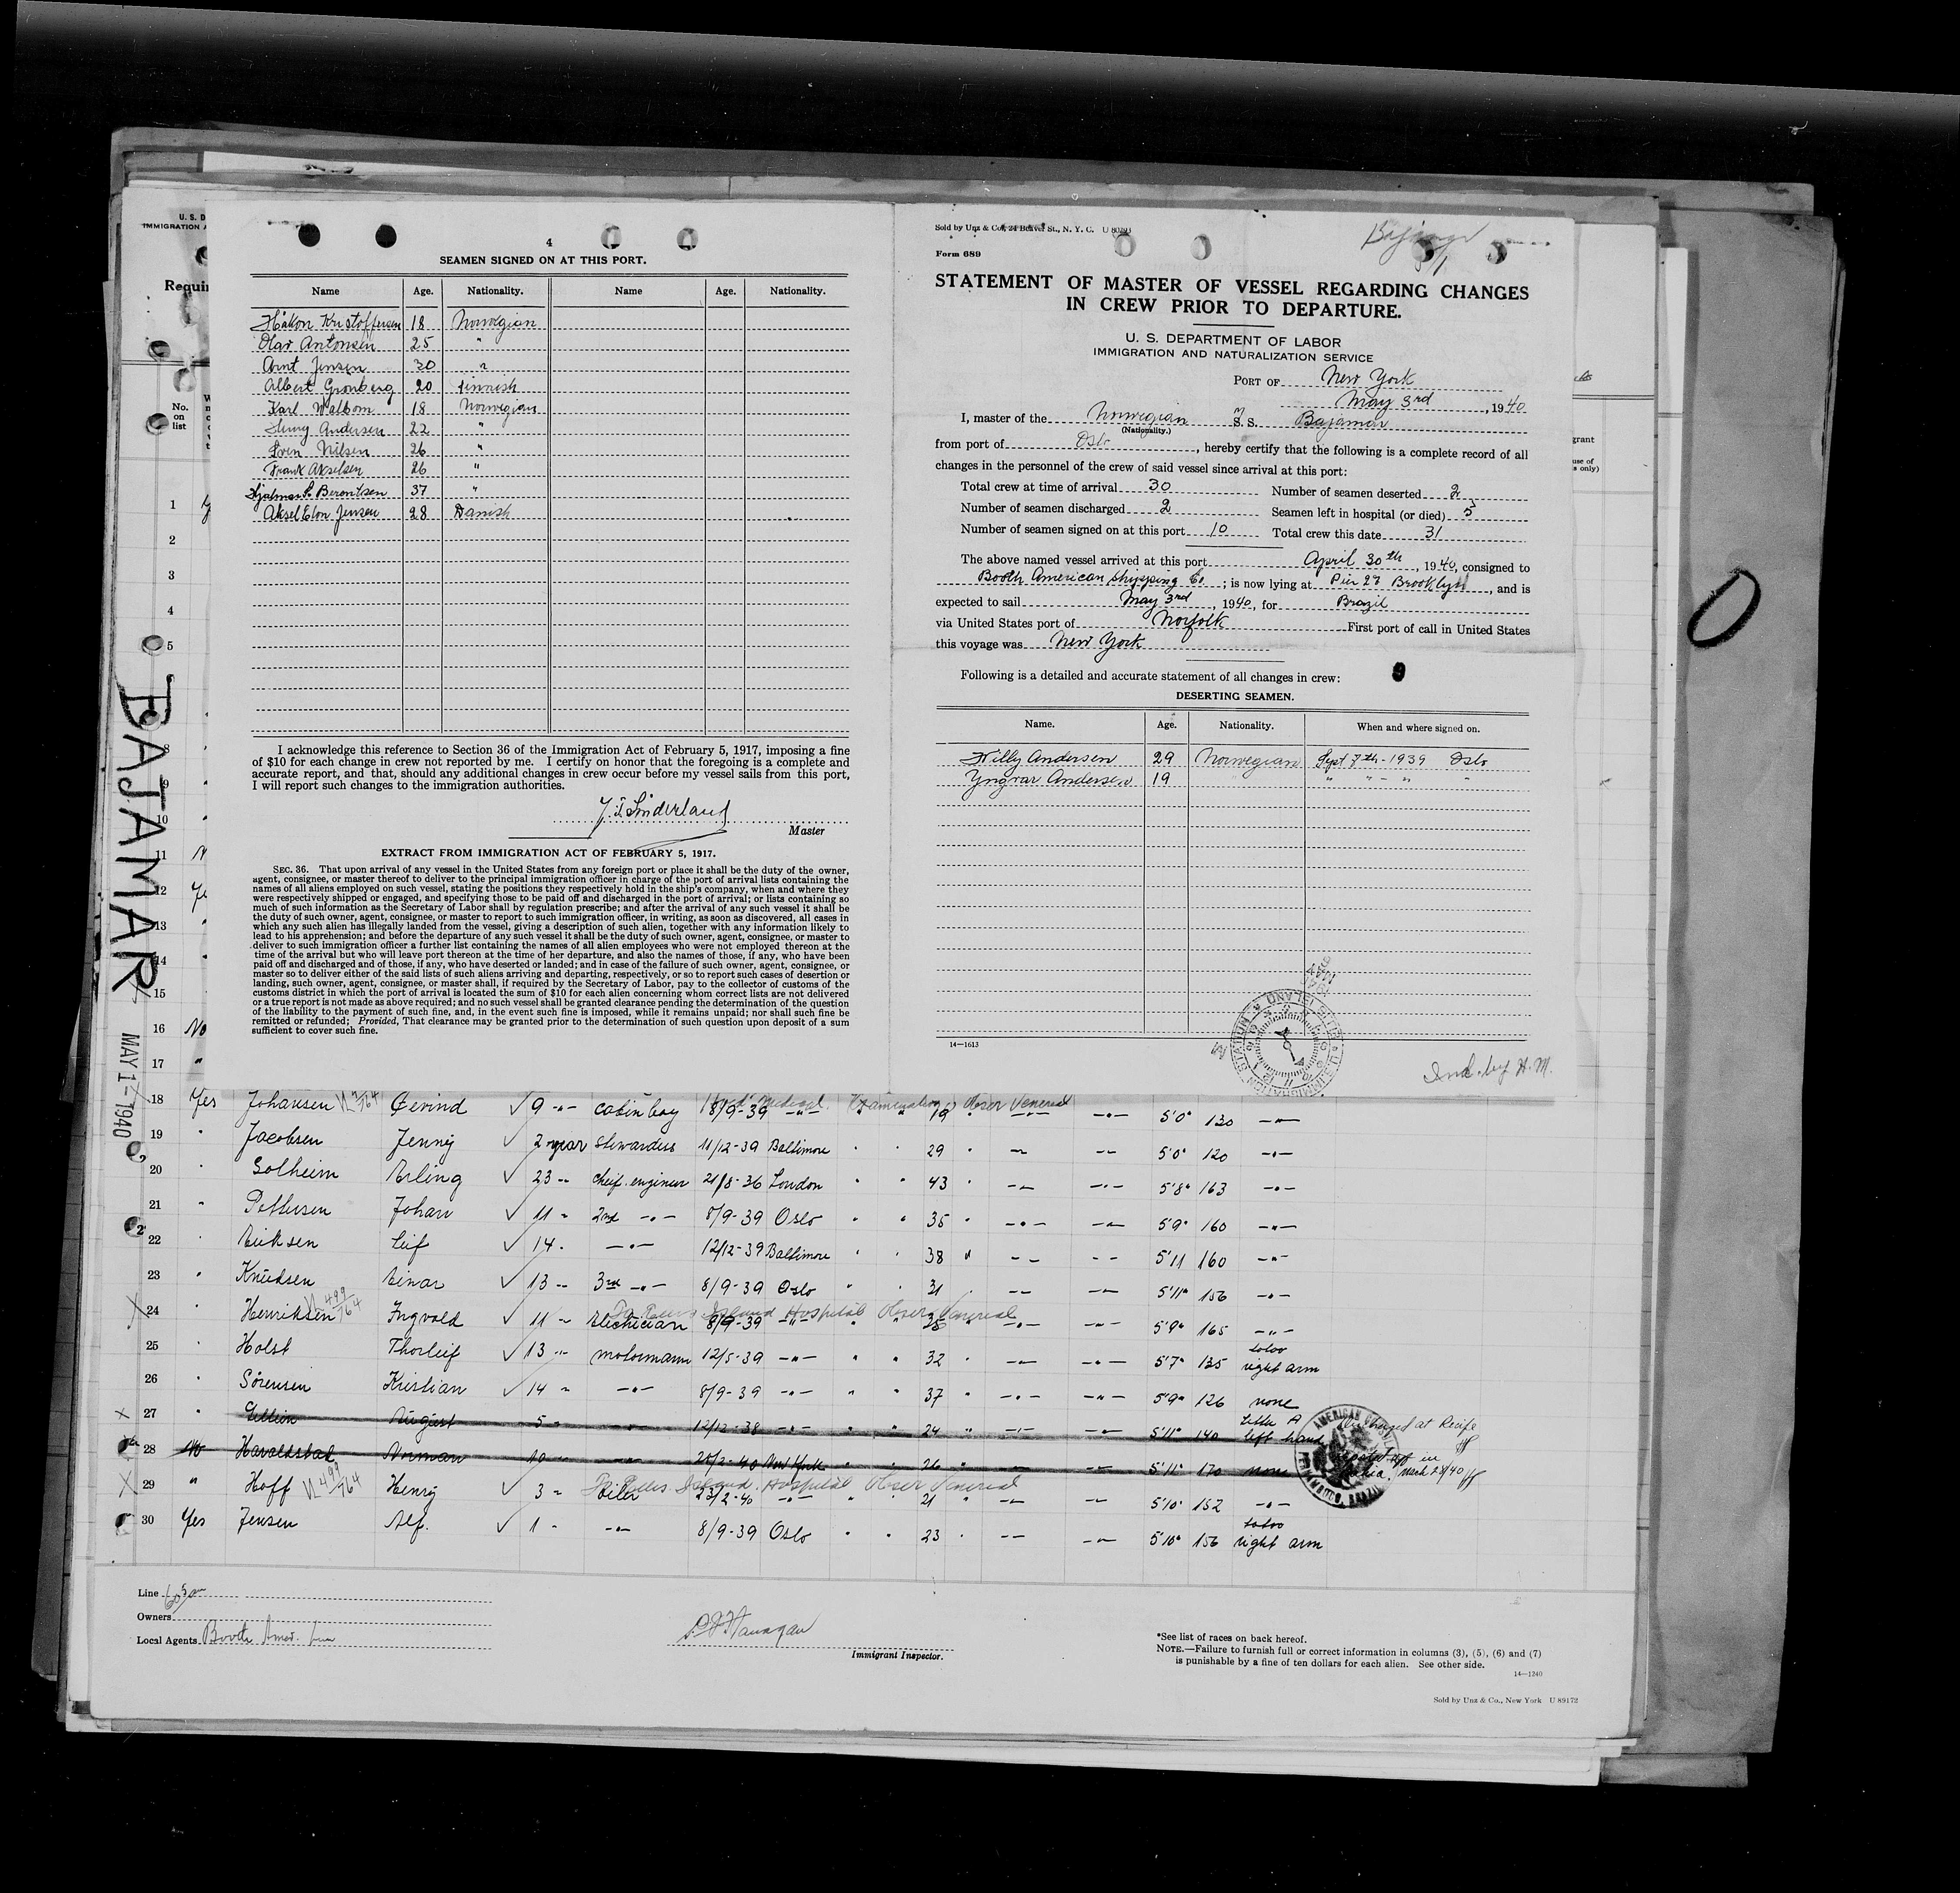 4
SEAMEN SIGNED ON AT THIS PORT.
Name Age. Nationality. Name Age. Nationality.
Håkon Kristoffersen 18 Norwegian
Olav Antonsen 25 "
Arnt Jensen 30 "
Albert Gronberg 20 Finnish
Karl Walbom 18 Norwegian
Henry Andersen 22 "
Sven Nilsen 26 "
Frank Akselsen 26 "
Hjalmar P. Berentsen 37 "
Aksel Elon Jensen 28 Danish
I acknowledge this reference to Section 36 of the Immigration Act of February 5, 1917, imposing a fine
of $10 for each change in crew not reported by me. I certify on honor that the foregoing is a complete and
accurate report, and that, should any additional changes in crew occur before my vessel sails from this port,
I will report such changes to the immigration authorities.
Master
EXTRACT FROM IMMIGRATION ACT OF FEBRUARY 5, 1917.
SEC. 36. That upon arrival of any vessel in the United States from any foreign port or place it shall be the duty of the owner,
agent, consignee, or master thereof to deliver to the principal immigration officer in charge of the port of arrival lists containing the
names of all aliens employed on such vessel, stating the positions they respectively hold in the ship's company, when and where they
were respectively shipped or engaged, and specifying those to be paid off and discharged in the port of arrival; or lists containing so
much of such information as the Secretary of Labor shall by regulation prescribe; and after the arrival of any such vessel it shall be
the duty of such owner, agent, consignee, or master to report to such immigration officer, in writing, as soon as discovered, all cases in
which any such alien has illegally landed from the vessel, giving a description of such alien, together with any information likely to
lead to his apprehension; and before the departure of any such vessel it shall be the duty of such owner, agent, consignee, or master to
deliver to such immigration officer a further list containing the names of all alien employees who were not employed thereon at the
time of the arrival but who will leave port thereon at the time of her departure, and also the names of those, if any, who have been
paid off and discharged and of those, if any, who have deserted or landed; and in case of the failure of such owner, agent, consignee, or
master so to deliver either of the said lists of such aliens arriving and departing, respectively, or so to report such cases of desertion or
landing, such owner, agent, consignee, or master shall, if required by the Secretary of Labor, pay to the collector of customs of the
customs district in which the port of arrival is located the sum of $10 for each alien concerning whom correct lists are not delivered
or a true report is not made as above required; and no such vessel shall be granted clearance pending the determination of the question
of the liability to the payment of such fine, and, in the event such fine is imposed, while it remains unpaid; nor shall such fine be
remitted or refunded; Provided, That clearance may be granted prior to the determination of such question upon deposit of a sum
sufficient to cover such fine.
Sold by Unz & Co., 24 Beaver St., N. Y. C.
Form 689
STATEMENT OF MASTER OF VESSEL REGARDING CHANGES
IN CREW PRIOR TO DEPARTURE.
U. S. DEPARTMENT OF LABOR
IMMIGRATION AND NATURALIZATION SERVICE
PORT OF New York
May 3rd, 1940
I, master of the Norwegian M S. S. Bajamar
(Nationality.)
from port of Oslo, hereby certify that the following is a complete record of all
changes in the personnel of the crew of said vessel since arrival at this port:
Total crew at time of arrival 30 Number of seamen deserted 2
Number of seamen discharged 2 Seamen left in hospital (or died) 5
Number of seamen signed on at this port 10 Total crew this date 31
The above named vessel arrived at this port April 30th, 1940, consigned to
Booth American Shipping Co.; is now lying at Pier 27 Brooklyn, and is
expected to sail May 3rd, 1940, for Brazil
via United States port of Norfolk First port of call in United States
this voyage was New York
Following is a detailed and accurate statement of all changes in crew:
DESERTING SEAMEN.
Name. Age. Nationality. When and where signed on.
Willy Andersen 29 Norwegian Sept 7th - 1939 Oslo
Yngvar Andersen 19 " " - " "
14—1613
Ind. by H. M.
BAJAMAR MAY 1 - 1940
U. S. D
IMMIGRATION A
Requir
No. on list
1
2
3
4
5
8
9
10
11 N
12 Ye
13
14
15
16 No
17 "
18 Yes Johansen Øeivind 9 -"- cabin boy 8/9-39 -"- 19 5'0" 130 -"-
19 " Jacobsen Jenny 2 year stewardess 11/12-39 Baltimore " " 29 " 5'0" 120 -"-
20 " Solheim Erling 23 -"- cheif. enginer 21/8-36 London " " 43 " 5'8" 163 -"-
21 " Pettersen Johan 11 " 2nd -"- 8/9-39 Oslo " " 35 " 5'9" 160 -"-
22 " Eriksen Leif 14 " -"- 12/12-39 Baltimore " " 38 " 5'11 160 -"-
23 " Knudsen Einar 13 -"- 3rd -"- 8/9-39 Oslo " 31 " 5'11" 156 -"-
24 " Henriksen Ingvald 11 " electrician 8/9-39 -"- 5'9" 165 -"-
25 " Holst Thorleif 13 -"- motormann 12/5-39 -"- " " 32 " 5'7" 135 tatoo right arm
26 " Sörensen Kristian 14 " -"- 8/9-39 -"- " " 37 " 5'9" 126 none
27 " August 5 " -"- 12/12-38 -"- " " 24 " 5'11" 140 left hand Discharged at Recife
28 No Haraldstad Norman 10 -"- New York " " 26 " 5'11" 170 none
29 " Hoff Henry 3 " Oiler 23/2-40 -"- " " 21 " 5'10" 152 -"-
30 Yes Jensen Alf. 1 " -"- 8/9-39 Oslo " " 23 " 5'10" 156 tatoo right arm
Line
Owners
Local Agents Booth Amer. Line
Immigrant Inspector.
*See list of races on back hereof.
NOTE.—Failure to furnish full or correct information in columns (3), (5), (6) and (7)
is punishable by a fine of ten dollars for each alien. See other side.
14—1240
Sold by Unz & Co., New York U 89172